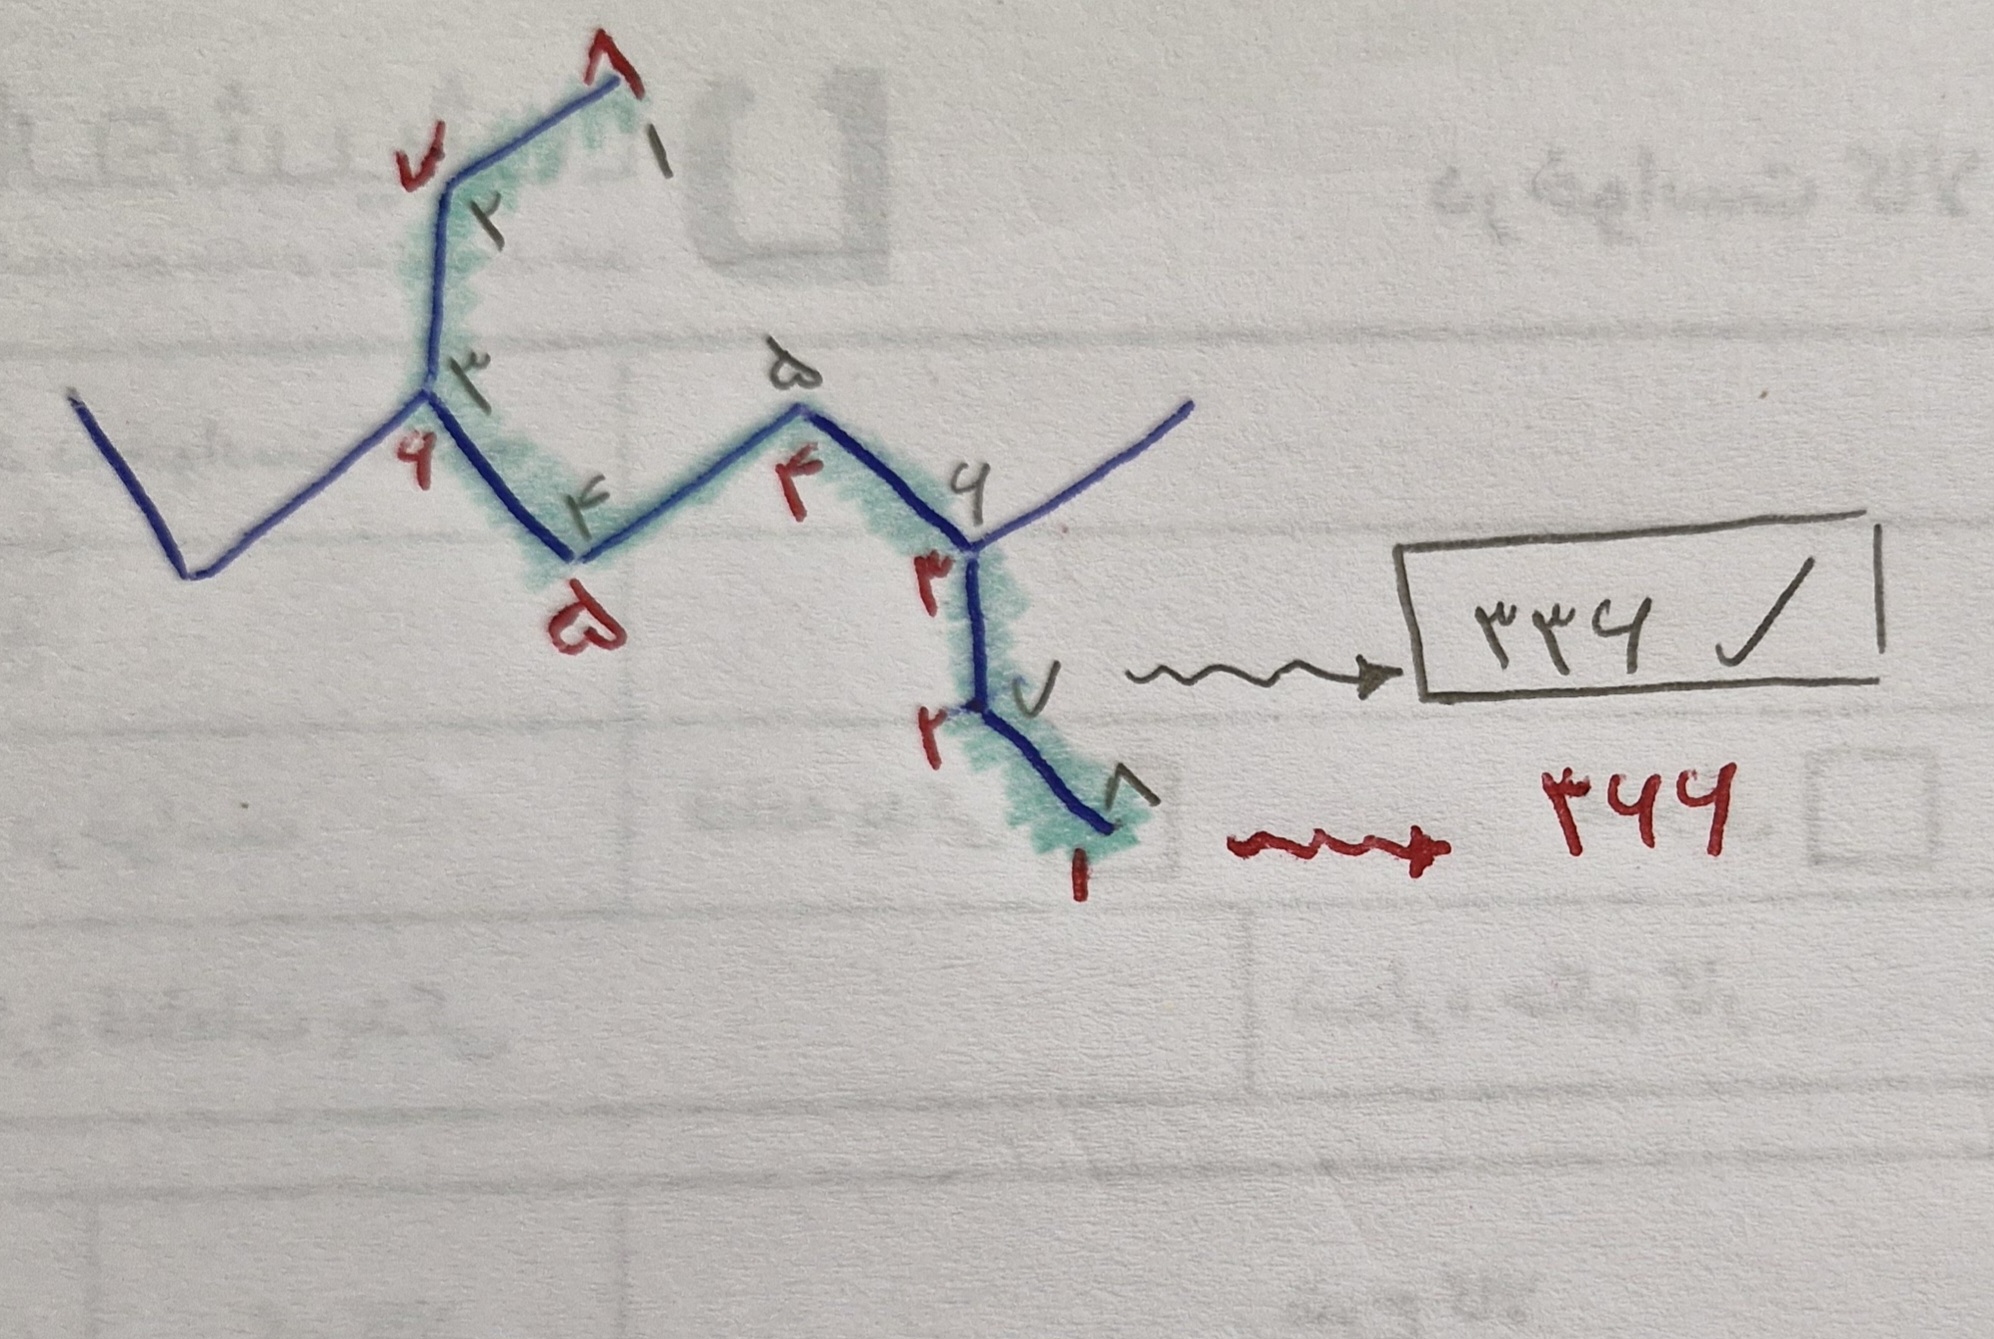 ۸
۱
۷
۲
۳
۵
۶
۴
۴
۶
۳
۵
۷
۲
۸
۱
۳۳۶ ✓
۳۶۶